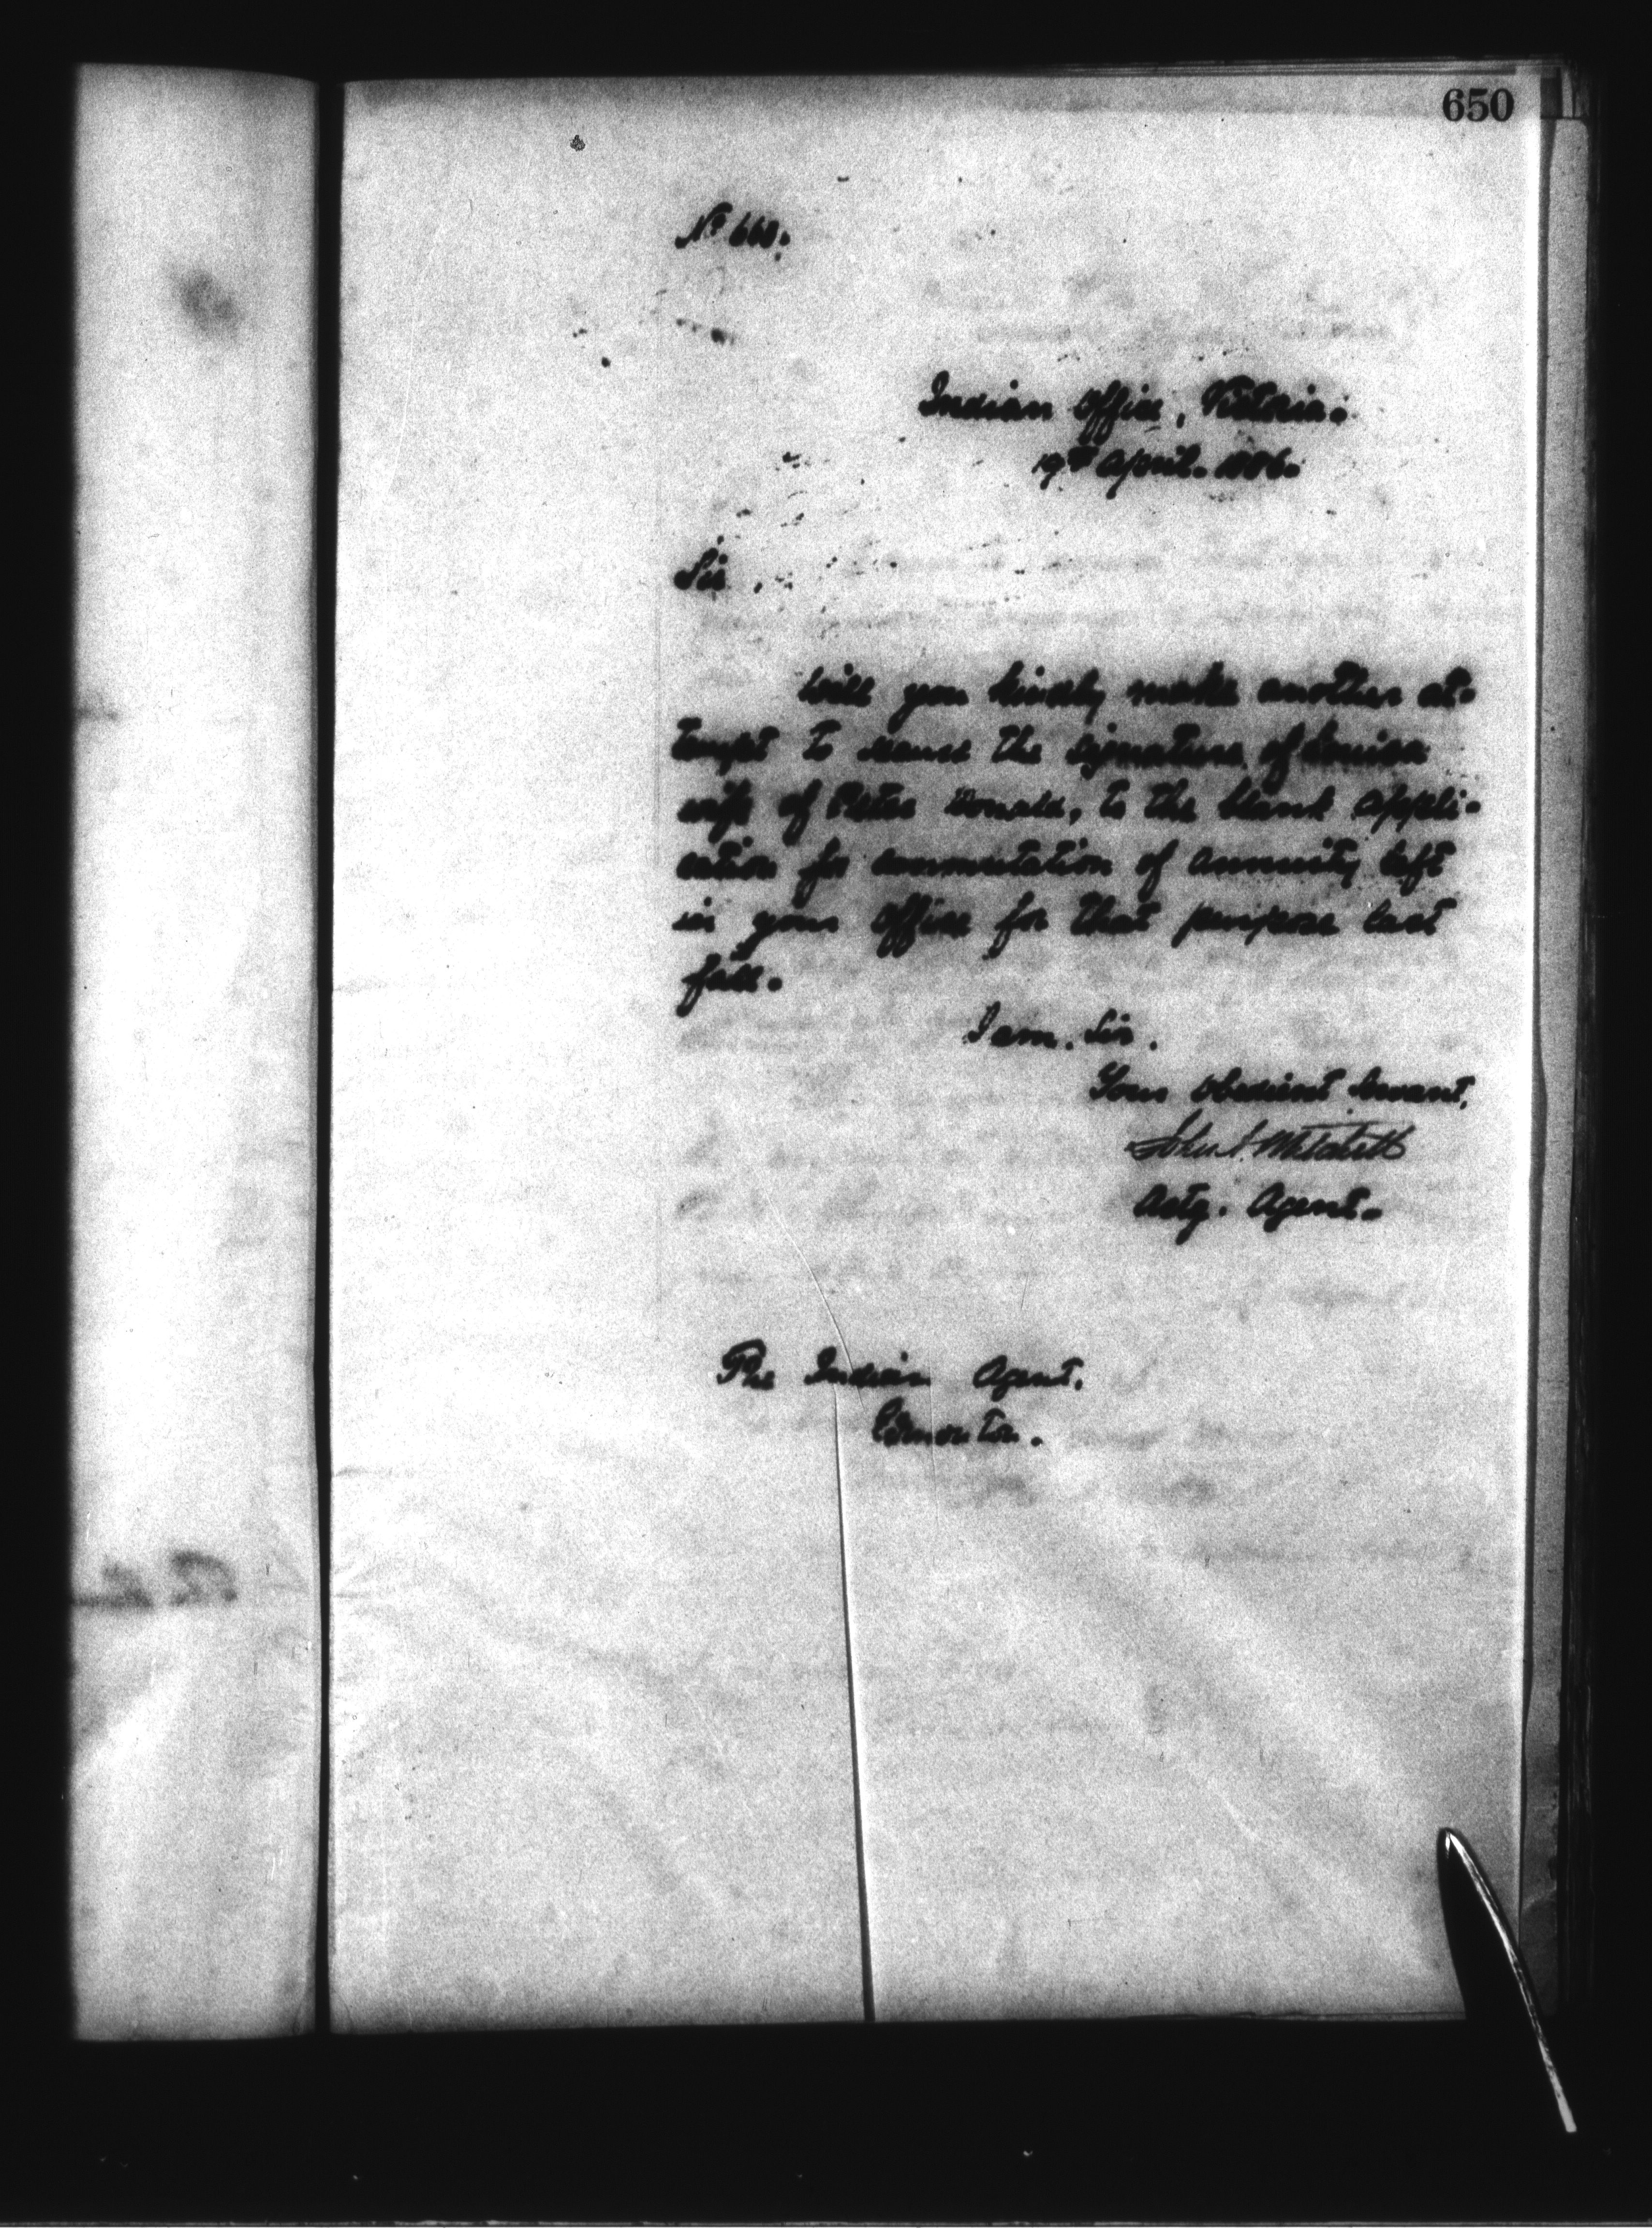 650
No 660.
Indian Office, Victoria.
19th April. 1886.
Sir,
Will you kindly make another at-
tempt to secure the signature of Louisa
wife of Peter Donald, to the blank appli-
cation for commutation of annuity left
in your office for that purpose last
fall.
I am. Sir.
Your obedient Servant,
John A. Mitchell
Actg. Agent.
The Indian Agent.
Edmonton.